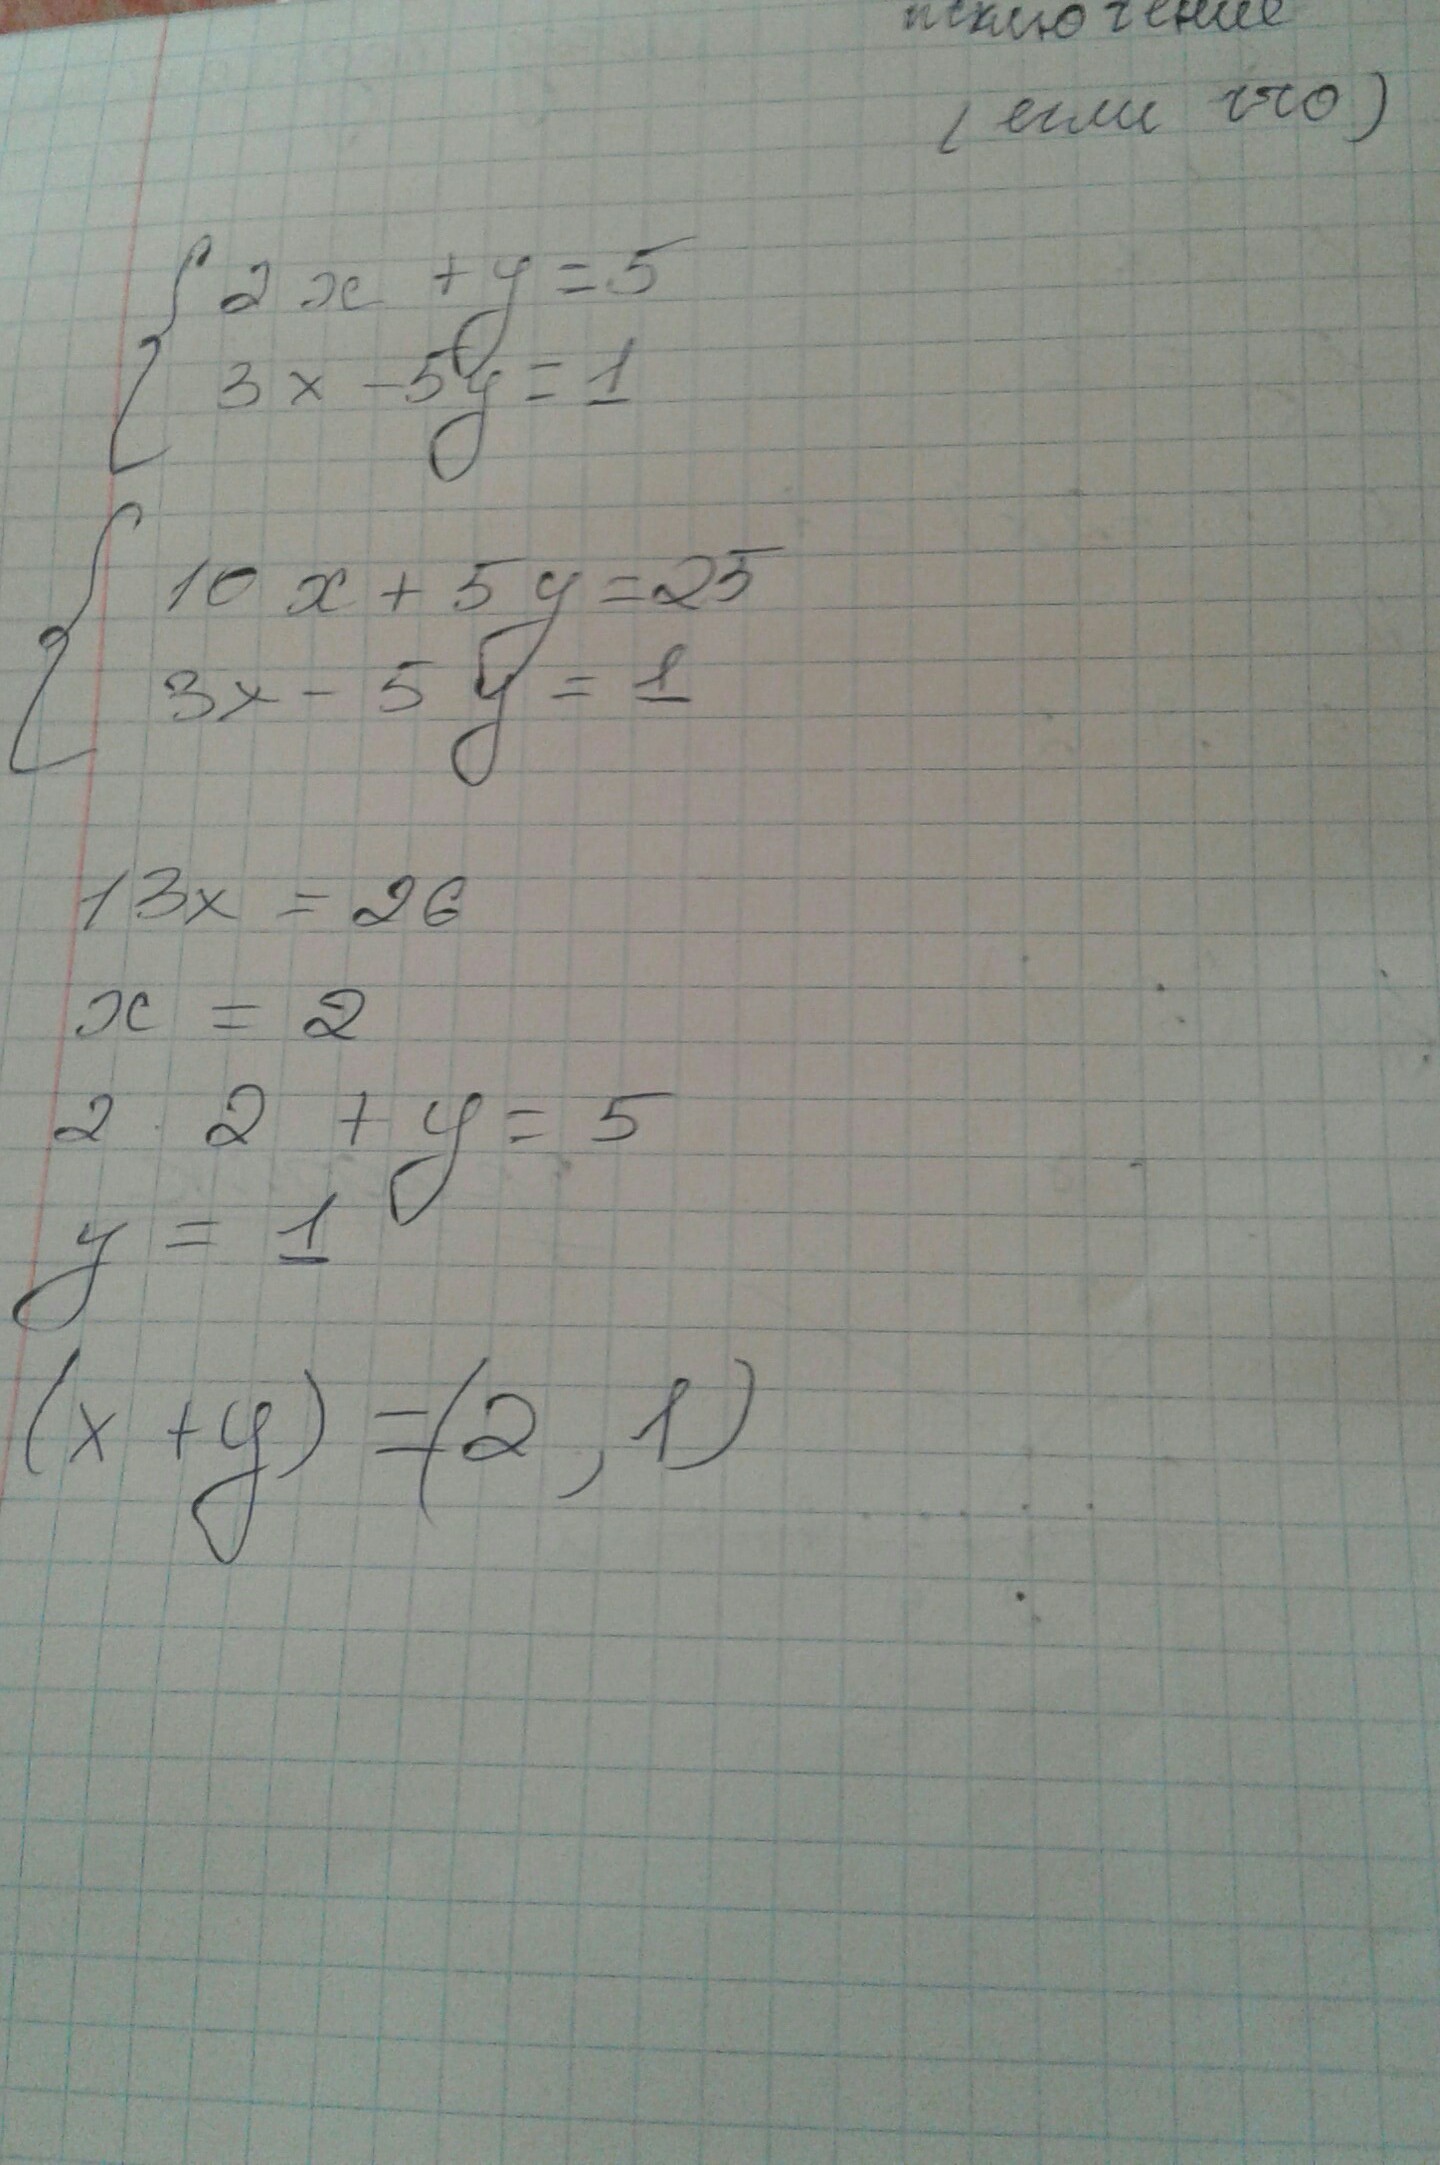 исключение
(если что)
2x + y = 5
3x - 5y = 1
10x + 5y = 25
3x - 5y = 1
13x = 26
x = 2
2 · 2 + y = 5
y = 1
(x + y) = (2, 1)